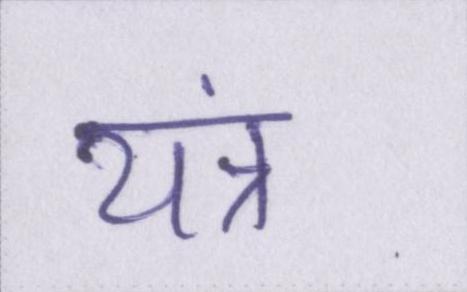 यंत्र